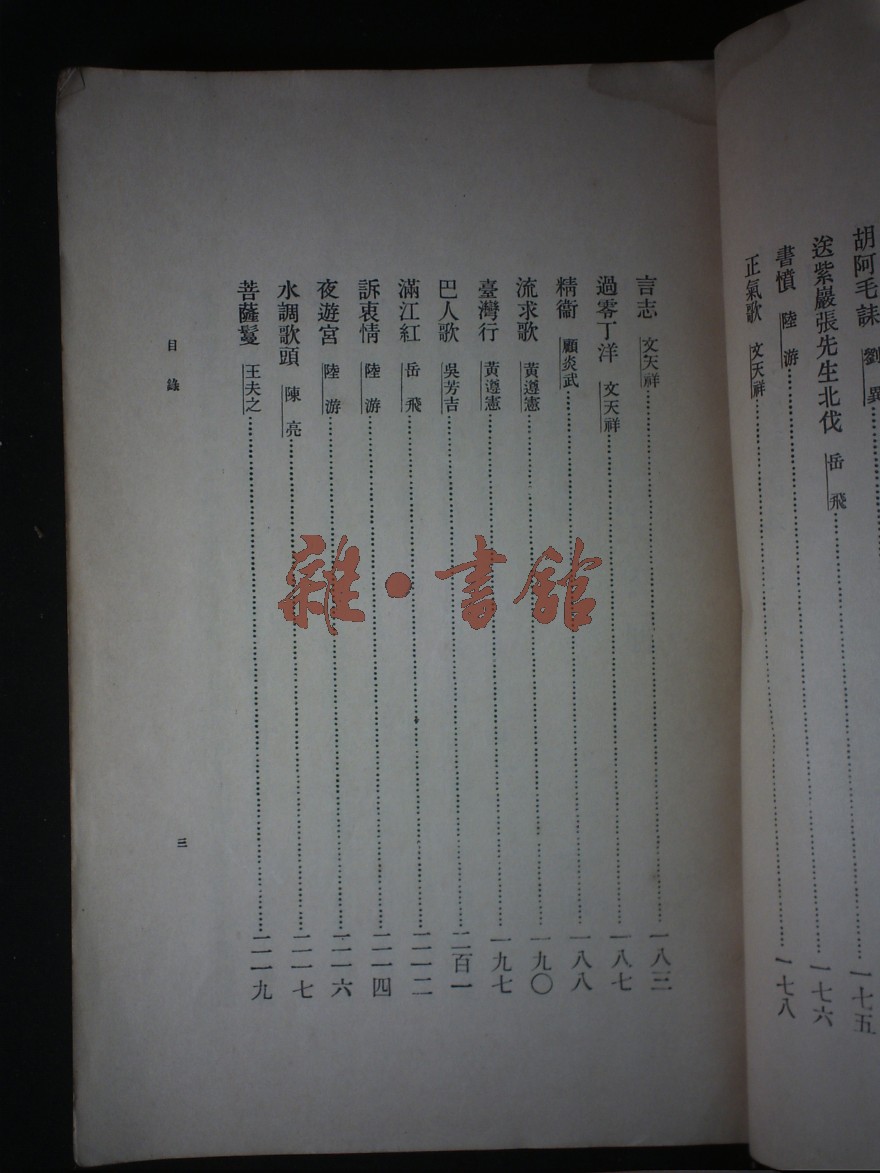 胡阿毛誄 劉異……一七五
送紫巖張先生北伐 岳飛……一七六
書憤 陸游……
正氣歌 文天祥……一七八
言志 文天祥……一八三
過零丁洋 文天祥……一八七
精衞 顧炎武……一八八
流求歌 黃遵憲……一九〇
臺灣行 黃遵憲……一九七
巴人歌 吳芳吉……二百一
滿江紅 岳飛……二一二
訴衷情 陸游……二一四
夜遊宮 陸游……二一六
水調歌頭 陳亮……二一七
菩薩鬘 王夫之……二一九
目錄
三
雜·書館